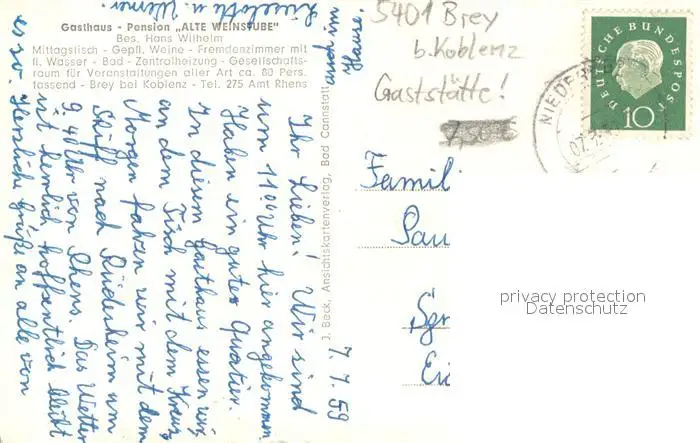 Gasthaus - Pension „ALTE WEINSTUBE"
Bes. Hans Wilhelm
Mittagstisch - Gepfl. Weine - Fremdenzimmer mit
fl. Wasser - Bad - Zentralheizung - Gesellschafts-
raum für Veranstaltungen aller Art ca. 80 Pers.
fassend - Brey bei Koblenz - Tel. 275 Amt Rhens
5401 Brey
b. Koblenz
Gaststätte!
DEUTSCHE BUNDESPOST
10
NIEDER
07.7.
J. Beck, Ansichtskartenverlag, Bad Cannstatt
7.7.59
Ihr Lieben! Wir sind
um 11⁰⁰ Uhr hier angekommen.
Haben ein gutes Quatier.
In diesem Gasthaus essen wir,
an dem Tisch mit dem Kreuz
Morgen fahren wir mit dem
Schiff nach Rüdesheim um
9.40 Uhr von Rhens. Das Wetter
ist ziemlich hoffentlich bleibt
es so. Herzliche Grüße an alle von
Liselotte u. Werner.
Famil
Pau
Sgr
Ei
privacy protection
Datenschutz